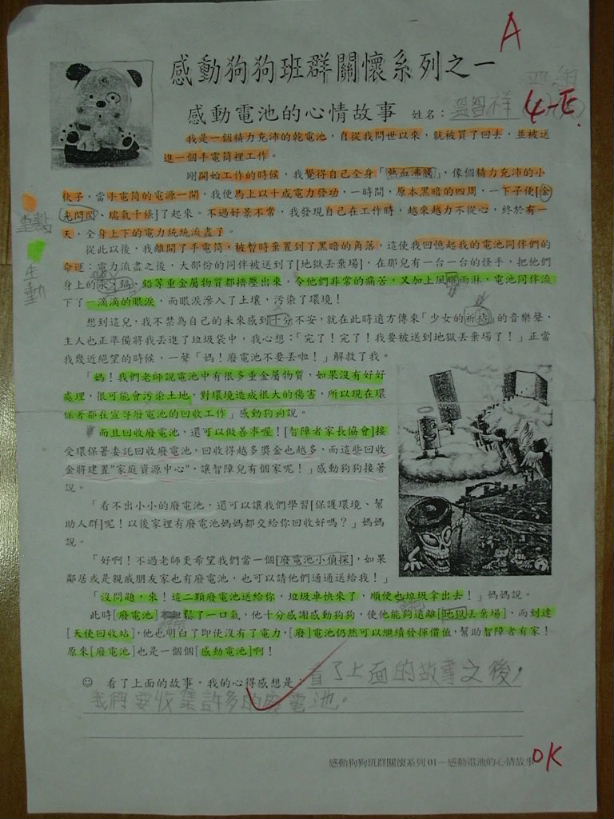 A
感動狗狗班群關懷系列之一
感動電池的心情故事 姓名：
4-E
我是一個精力充沛的乾電池，自從我問世以來，就被買了回去，並被送
進一個手電筒裡工作。
剛開始工作的時候，我覺得自己全身「熱血沸騰」，像個精力充沛的小
伙子，當手電筒的電源一開，我便馬上以十成電力發功，一時間，原本黑暗的四周，一下子使[金
光閃閃、瑞氣千條]了起來，不過好景不常，我發現自己在工作時，越來越力不從心，終於有一
天，全身上下的電力統統流盡了。
重點
從此以後，我離開了手電筒，被暫時棄置到了黑暗的角落，這使我回憶起我的電池同伴們的
命運：電力流盡之後，大部份的同伴被送到了[地獄丟棄場]，在那兒有一台一台的怪手，把他們
生動
身上的 鉛等重金屬物質都擠壓出來，令他們非常的痛苦，又加上風吹雨淋，電池同伴流
下了一滴滴的眼淚，而眼淚滲入了土壤，污染了環境！
想到這兒，我不禁為自己的未來感到十分不安，就在此時遠方傳來「少女的祈禱」的音樂聲，
主人也正準備將我丟進了垃圾袋中，我心想：「完了！完了！我要被送到地獄丟棄場了！」正當
我幾近絕望的時候，一聲「媽！廢電池不要丟啦！」解救了我。
「媽！我們老師說電池中有很多重金屬物質，如果沒有好好
處理，很可能會污染土地，對環境造成很大的傷害，所以現在環
保者都在宣導廢電池的回收工作」感動狗狗說。
而且回收廢電池，還可以做善事喔！[智障者家長協會]接
受環保署委託回收廢電池，回收得越多獎金也越多，而這些回收
金將建置"家庭資源中心"，讓智障兒有個家呢！」感動狗狗接著
說。
「看不出小小的廢電池，還可以讓我們學習[保護環境、幫
助人群]呢！以後家裡有廢電池媽媽都交給你回收好嗎？」媽媽
說。
「好啊！不過老師更希望我們當一個[廢電池小偵探]，如果
鄰居或是親戚朋友家也有廢電池，也可以請他們通通送給我！」
「沒問題，來！這二顆廢電池送給你，垃圾車快來了，順便也垃圾拿出去！」媽媽說。
此時[廢電池] 鬆了一口氣，他十分感謝感動狗狗，使他能夠遠離[地獄丟棄場]，而到達
[天使回收站]，他也明白了即使沒有了電力，[廢]電池仍然可以繼續發揮價值，幫助智障者有家！
原來[廢電池]也是一個個[感動電池]啊！
☺ 看了上面的故事，我的心得感想是：看了上面的故事之後，
我們要收集許多的廢電池。
感動狗狗班群關懷系列 01－感動電池的心情故事
OK